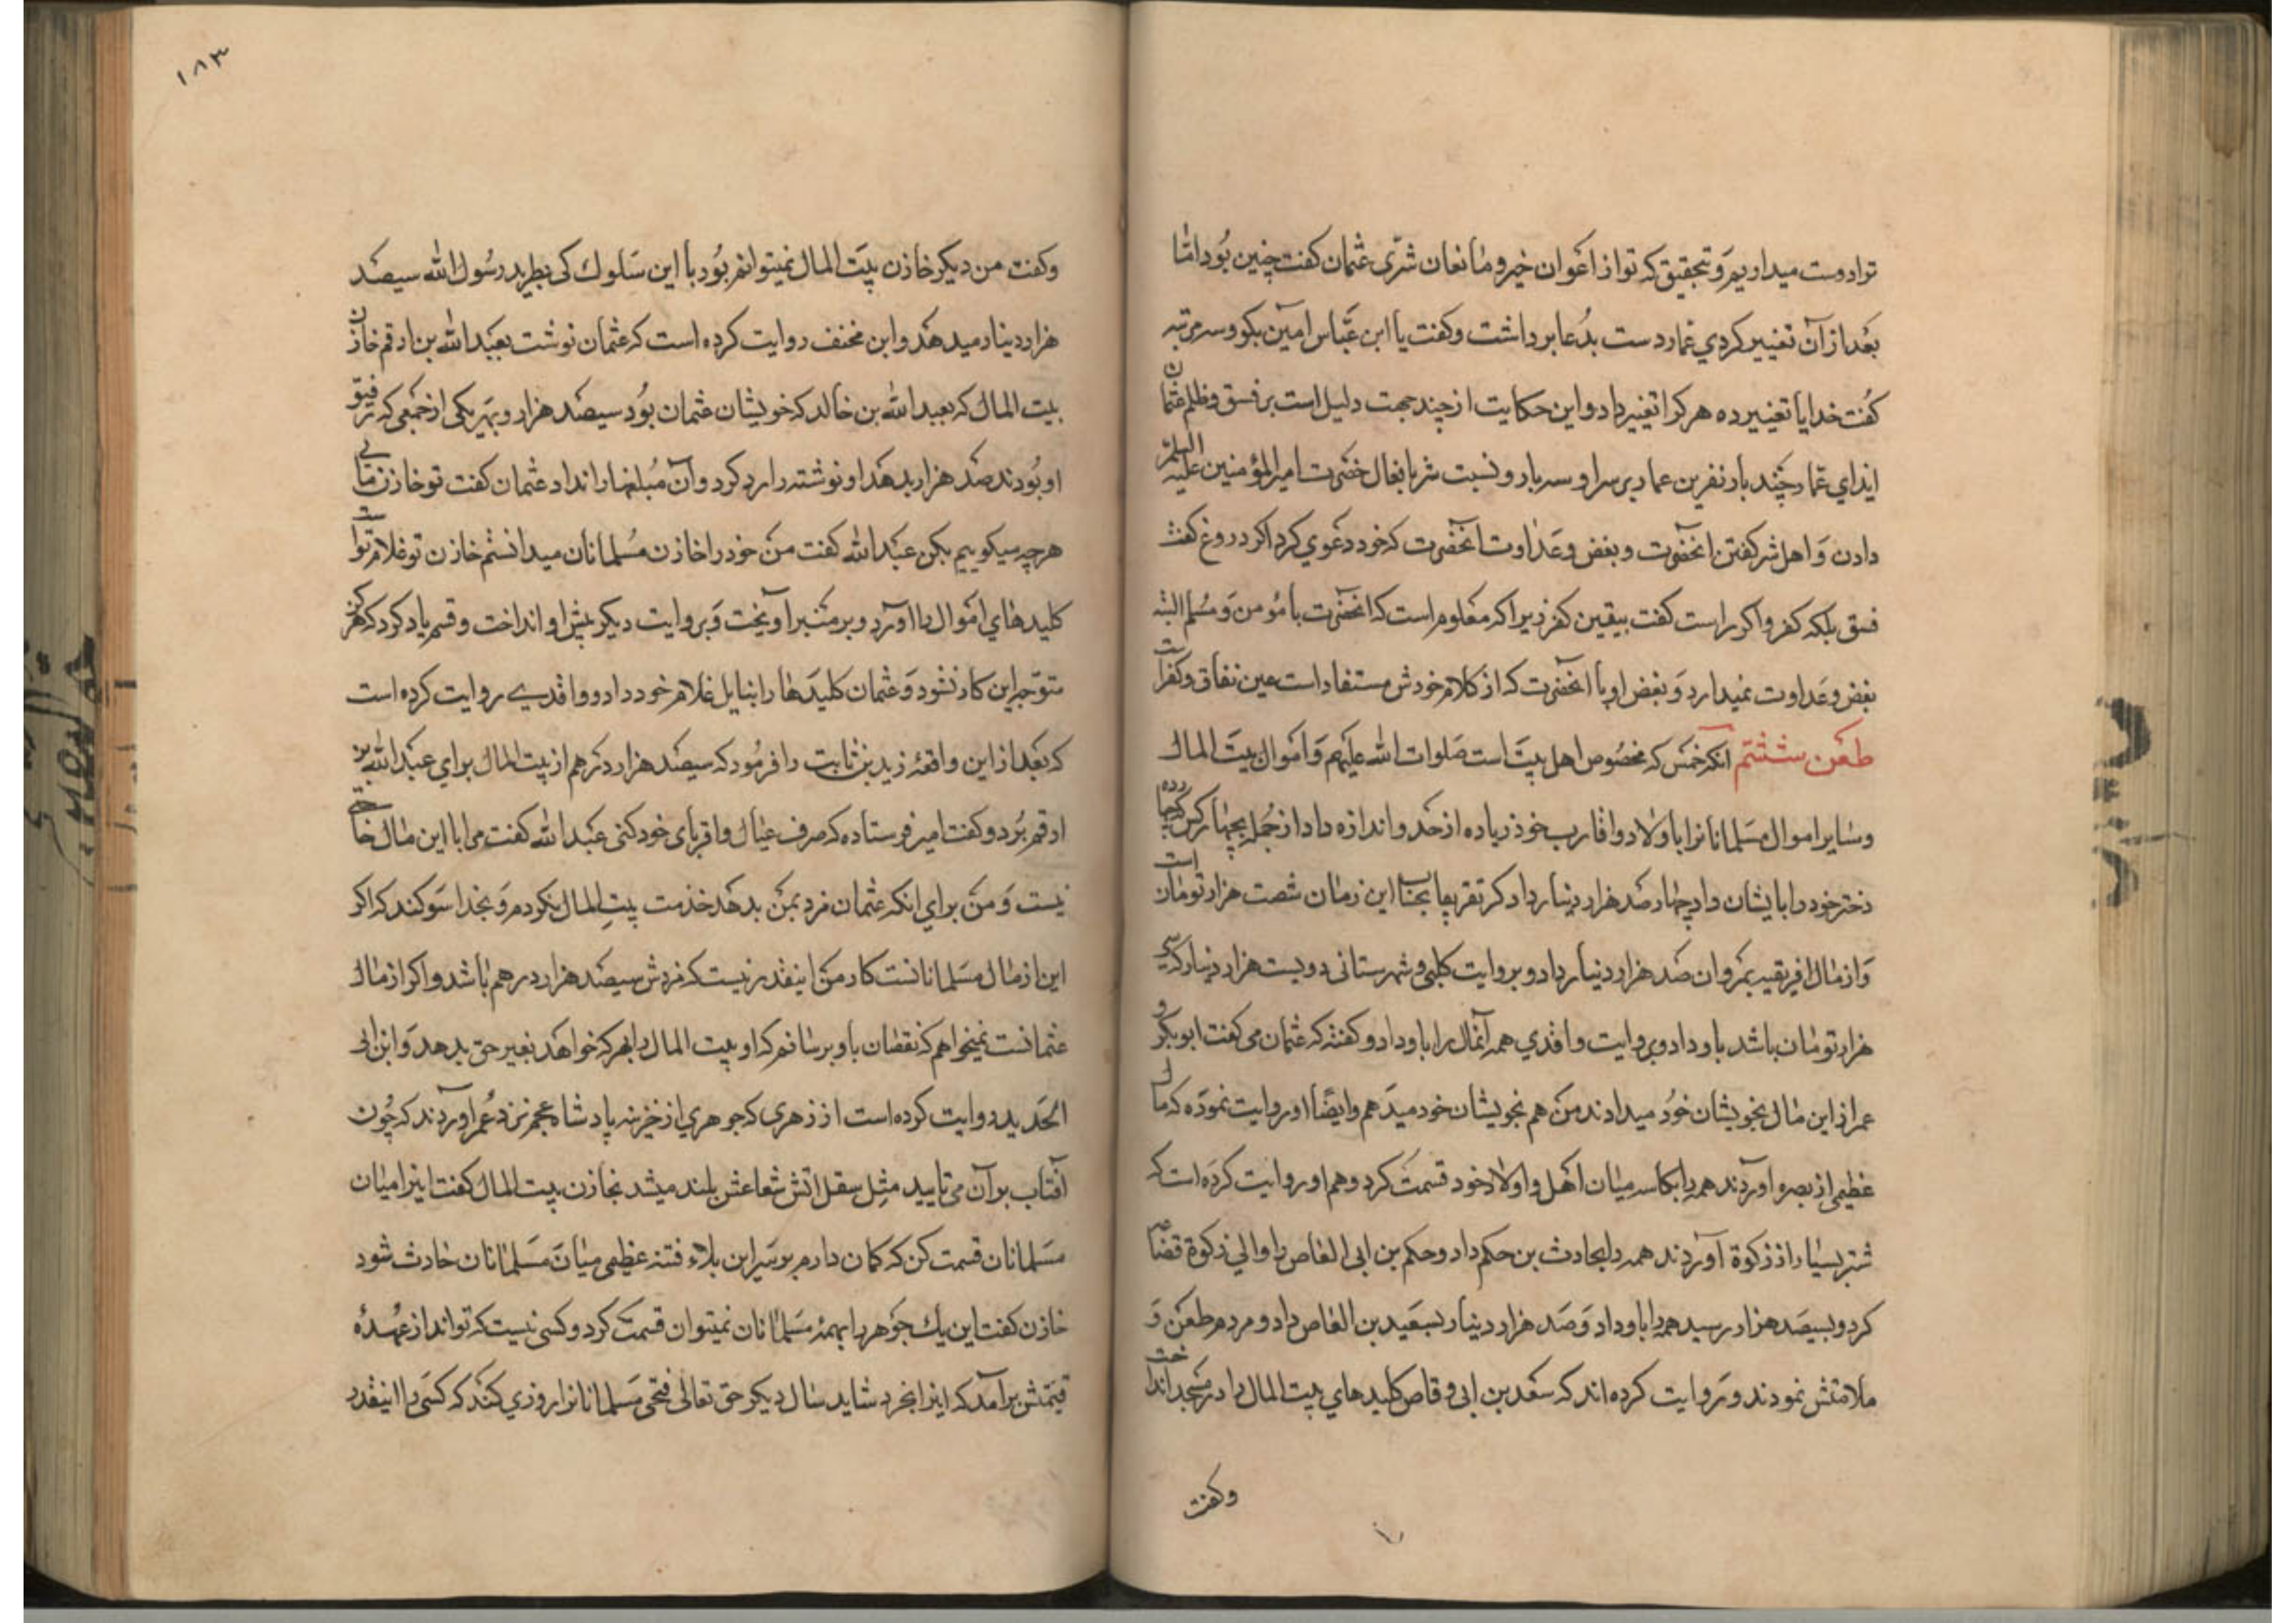 ترا دوست میداریم و تحقیق که تو از اعوان خیر و مانعان شرّی عثمان کفت چنین بود امّا
بعد از آن تغییر کردی عمّار دست بدعا برداشت و کفت یا ابن عبّاس امین بکو و سه مرتبه
کفت خدایا تغییر ده هر که را تغییر داد و این حکایت از چند جهت دلیل است بر فسق و ظلم عثمان
ایذای عمّار چند بار نفرین عمار بر سر او سه بار و نسبت شر بافعال حضرت امیرالمؤمنین علیه السلم
دادن و اهل شر کفتن انحضرت و بغض و عداوت انحضرت که خود دعوی کرد اکر دروغ کفت
فسق بلکه کفر و اکر راست کفت بیقین کفر زیرا که معلوم است که انحضرت با مؤمن و مسلم البته
بغض و عداوت نمیدارد و بغض او با انحضرت که از کلام خودش مستفاد است عین نفاق و کفر است
طعن ششم انکه خمس که مخصوص اهل بیت است صلوات الله علیهم و اموال بیت المال
و سایر اموال مسلمانانرا باولاد و اقارب خود زیاده از حد و اندازه داد از جمله بچهار کس که چهار
دختر خود را بایشان داد چهار صد هزار دینار داد که تقریبا بحساب این زمان شصت هزار تومان است
و از مال افریقیه بمروان صد هزار دینار داد و بروایت کلبی و شهرستانی دویست هزار دینار که سی
هزار تومان باشد باو داد و بروایت واقدی همه آنمال را باو داد و کفته که عثمان می کفت ابو بکر و
عمر از این مال بخویشان خود میدادند من هم بخویشان خود میدهم و ایضا او روایت نموده که مال
عظیمی از بصره آوردند همه را بکاسه میان اهل و اولاد خود قسمت کرد و هم او روایت کرده است که
شتر بسیار از زکوة آوردند همه را بحارث بن حکم داد و حکم بن ابی العاص را والی زکوة قضاعه
کرد و بسیصد هزار رسید همه را باو داد و صد هزار دینار بسعید بن العاص داد و مردم طعن و
ملامتش نمودند و روایت کرده اند که سعد بن ابی وقاص کلیدهای بیت المال را در مسجد انداخت
وکفت
۱۸۳
وکفت من دیکر خازن بیت المال نمیتوانم بود با این سلوک کی بطرید رسول الله سیصد
هزار دینار میدهد و ابن مخنف روایت کرده است که عثمان نوشت بعبدالله بن ارقم خازن
بیت المال که بعبدالله بن خالد که خویشان عثمان بود سیصد هزار و بهر یکی از جمعی که رفیق
او بودند صد هزار بدهد او نوشته را رد کرد و آن مبلغها را نداد عثمان کفت تو خازن مائی
هر چه میکوییم بکن عبدالله کفت من خود را خازن مسلمانان میدانستم خازن تو غلام تو است
کلیدهای اموال را آورد و بر منبر آویخت و بروایت دیکر پیش او انداخت و قسم یاد کرد که هرکز
متوجه این کار نشود و عثمان کلیدها را بنایل غلام خود داد و واقدی روایت کرده است
که بعد از این واقعه زید بن ثابت را فرمود که سیصد هزار درهم از بیت المال برای عبدالله بن
ارقم برد و کفت امیر فرستاده که صرف عیال و اقربای خود کنی عبدالله کفت مرا با این مال حاجتی
نیست و من برای انکه عثمان مزد بمن بدهد خدمت بیت المال نکردم و بخدا سوکند که اکر
این از مال مسلمانانست کار من اینقدر نیست که مزدش سیصد هزار درهم باشد و اکر از مال
عثمانست نمیخواهم که نقصان باو برسانم که او بیت المال را بهر که خواهد بغیر حق بدهد و ابن ابی
الحدید روایت کرده است از زهری که جوهری از خزینه پادشاه عجم نزد عمر آوردند که چون
آفتاب بر آن می تابید مثل آتش شعاعش بلند میشد بخازن بیت المال کفت اینرا میان
مسلمانان قسمت کن که کمان دارم بر سر این بلاء و فتنه عظیمی میان مسلمانان حادث شود
خازن کفت این یک جوهر را بهمه مسلمانان نمیتوان قسمت کرد و کسی نیست که تواند از عهده
قیمتش برآمد که اینرا بخرد شاید سال دیکر حق تعالی فتحی مسلمانانرا روزی کند که کسی را اینقدر